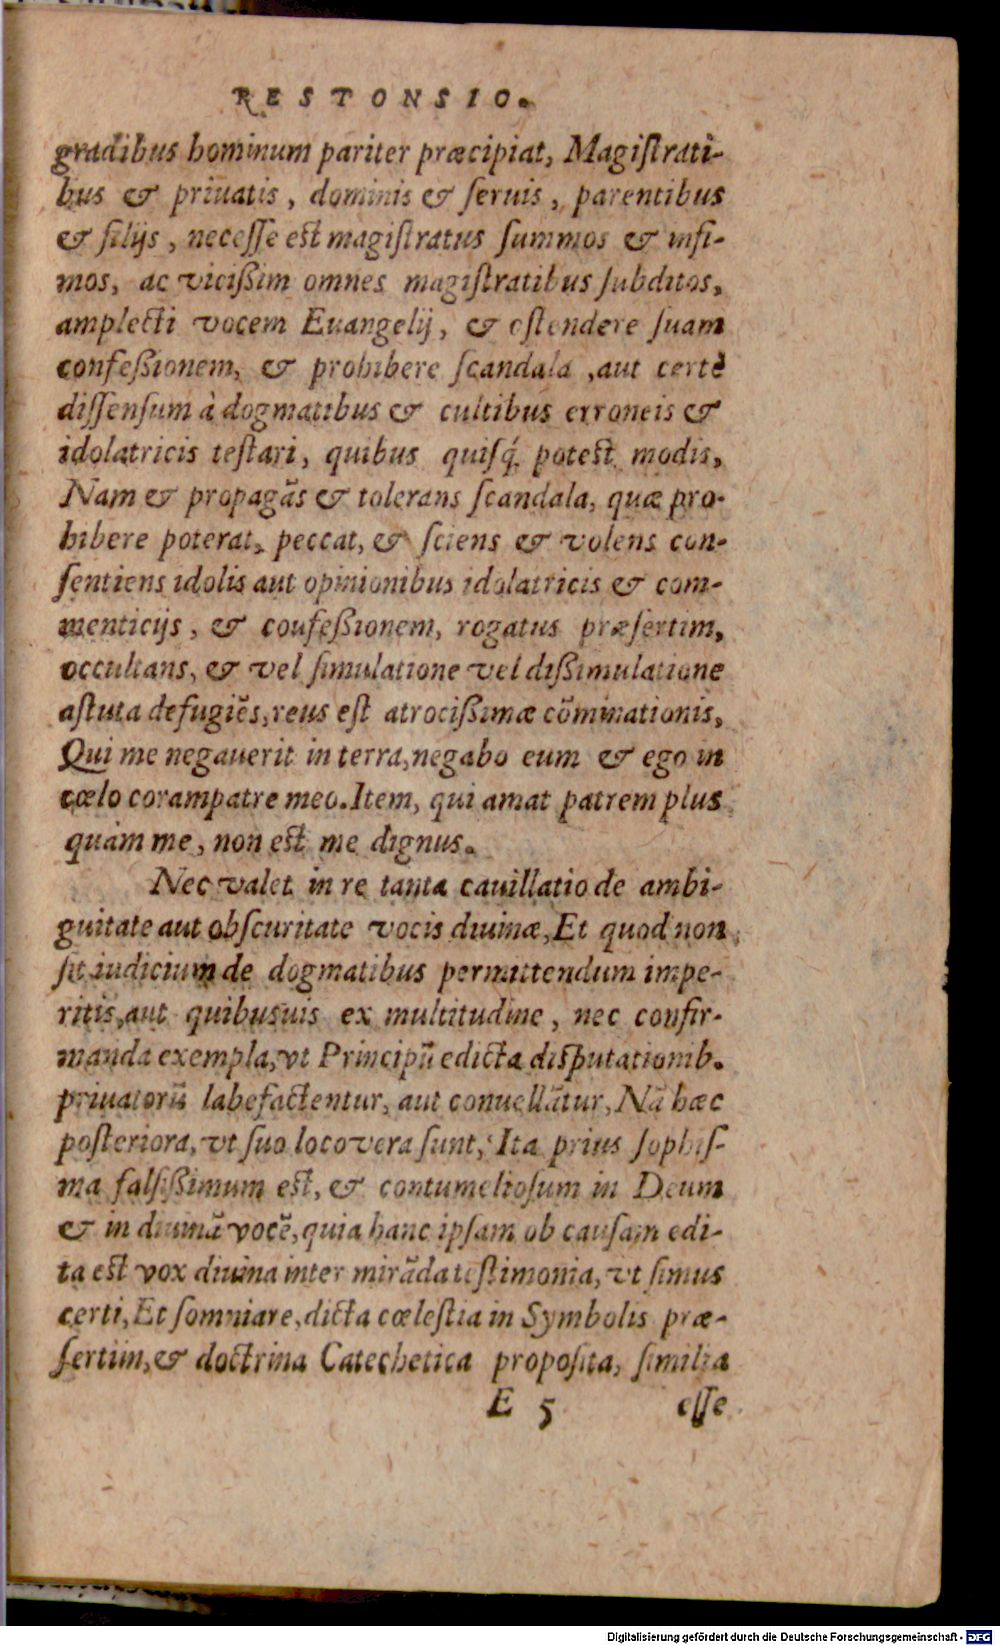 RESTONSIO.
gradibus hominum pariter præcipiat, Magiſtrati-
bus & priuatis, dominis & ſeruis, parentibus
& filijs, neceſſe est magiſtratus ſummos & infi-
mos, ac viciſſim omnes magiſtratibus ſubditos,
amplecti vocem Euangelij, & oſtendere ſuam
confeßionem, & prohibere ſcandala, aut certè
diſſenſum à dogmatibus & cultibus erroneis &
idolatricis teſtari, quibus quiſq́; potest modis,
Nam & propagãs & tolerans ſcandala, quæ pro-
hibere poterat, peccat, & ſciens & volens con-
ſentiens idolis aut opinionibus idolatricis & com-
menticijs, & coufeßionem, rogatus præſertim,
occultans, & vel ſimulatione vel dißimulatione
aſtuta defugiẽs, reus eſt atrocißimæ cõminationis,
Qui me negauerit in terra, negabo eum & ego in
cœlo corampatre meo. Item, qui amat patrem plus
quàm me, non est me dignus.
Nec valet in re tanta cauillatio de ambi-
guitate aut obſcuritate vocis diuinæ, Et quod non
ſit iudicium de dogmatibus permittendum impe-
ritis, aut quibusuis ex multitudine, nec confir-
manda exempla, vt Principũ edicta diſputationib.
priuatorũ labefactentur, aut conuellãtur, Nã hæc
poſteriora, vt ſuo loco vera ſunt, Ita prius ſophiſ-
ma falſißimum est, & contumelioſum in Deum
& in diuinã vocẽ, quia hanc ipſam ob cauſam edi-
ta est vox diuina inter mirãda teſtimonia, vt ſimus
certi, Et ſomniare, dicta cœleſtia in Symbolis præ-
ſertim, & doctrina Catechetica propoſita, ſimilia
E 5 eſſe
Digitalisierung gefördert durch die Deutsche Forschungsgemeinschaft - DFG